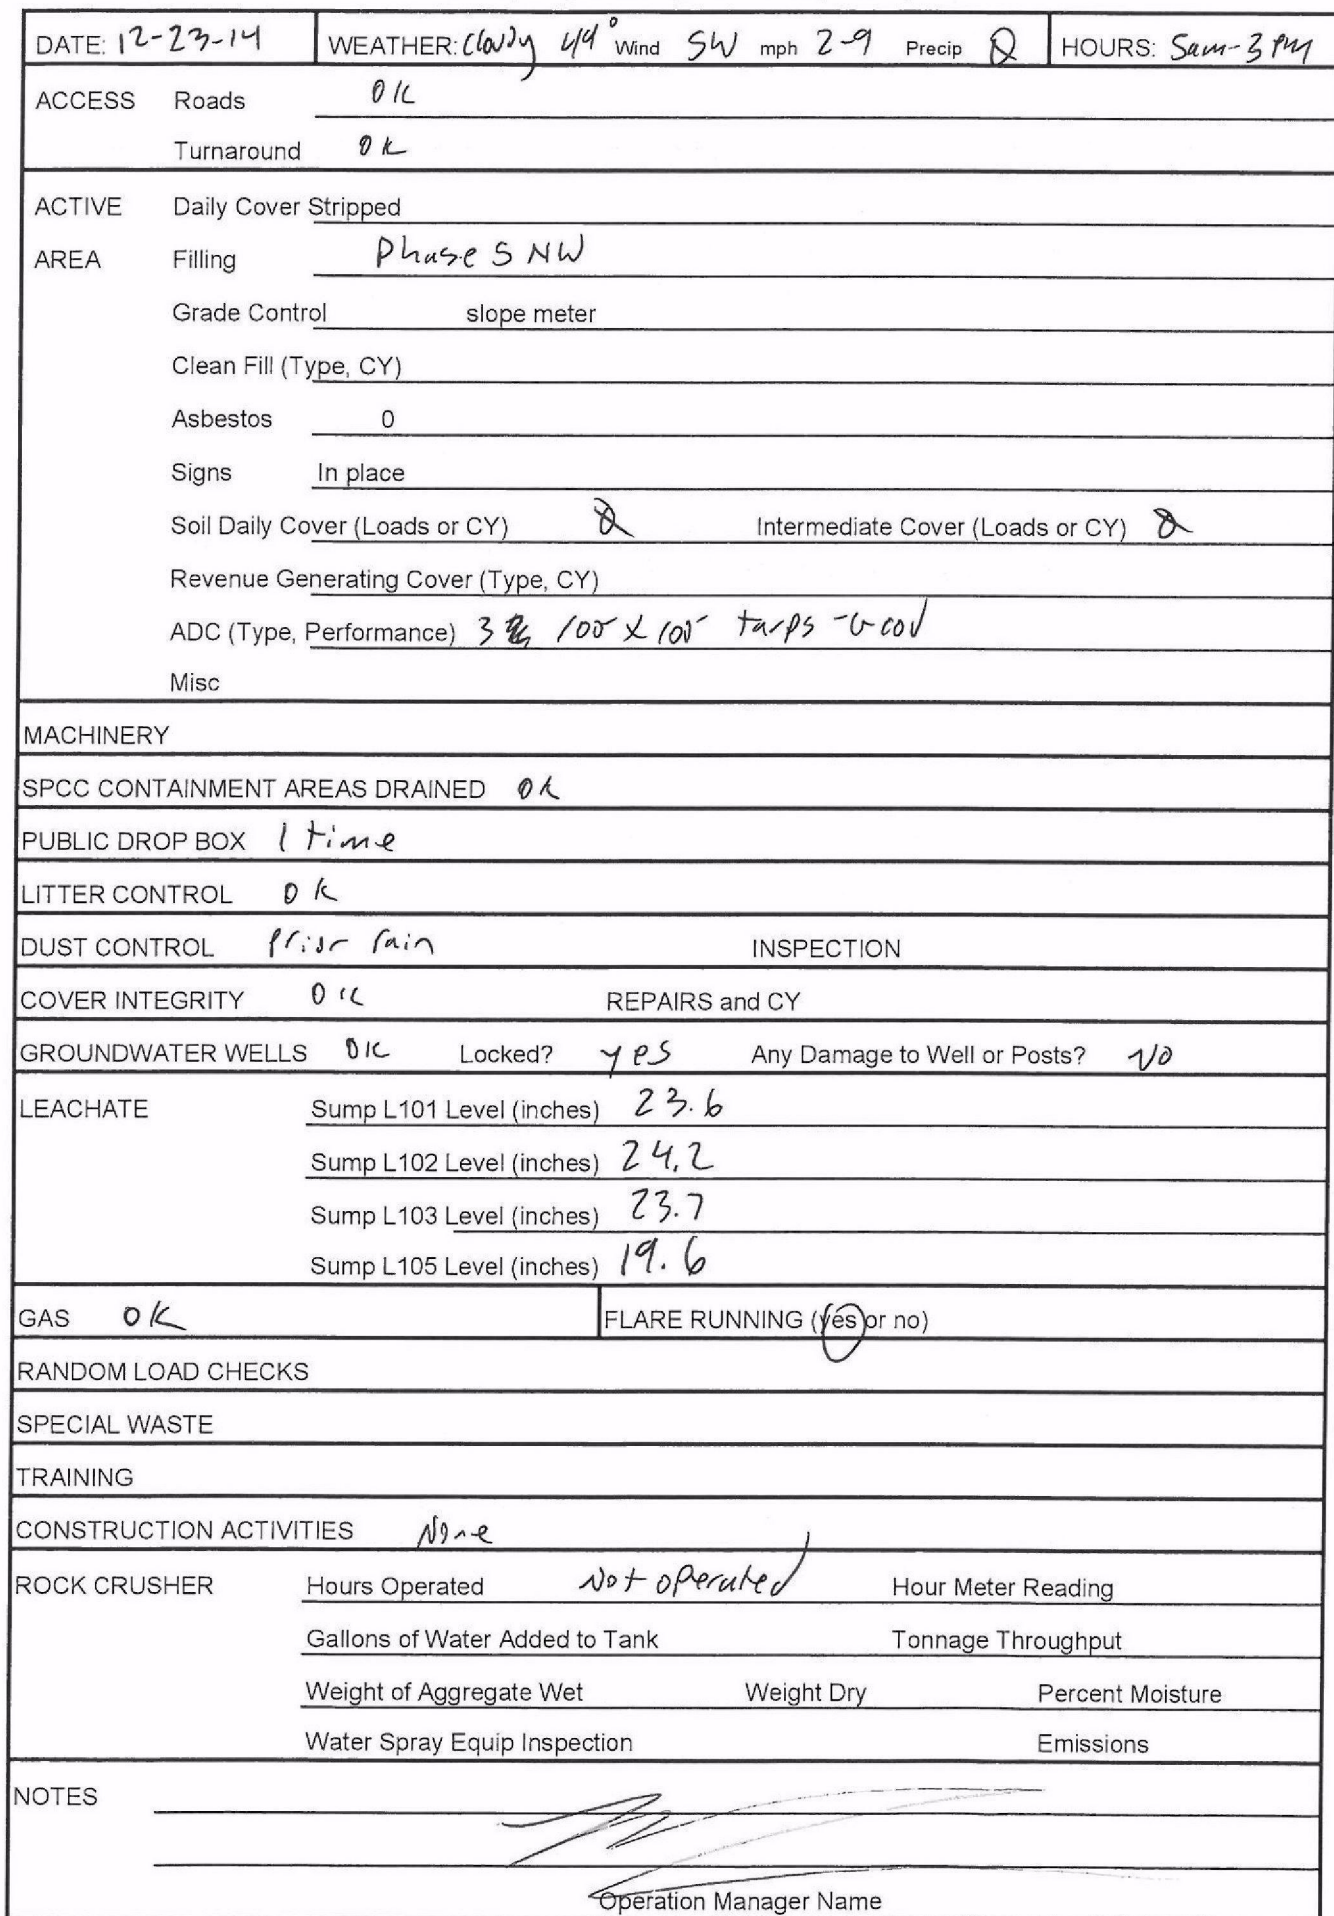 DATE: 12-23-14 WEATHER: Cloudy 49° Wind SW mph 2-9 Precip 0 HOURS: 5am-3PM
ACCESS Roads OK
Turnaround OK
ACTIVE Daily Cover Stripped
AREA Filling Phase 5 NW
Grade Control slope meter
Clean Fill (Type, CY)
Asbestos 0
Signs In place
Soil Daily Cover (Loads or CY) 0 Intermediate Cover (Loads or CY) 0
Revenue Generating Cover (Type, CY)
ADC (Type, Performance) 3 100 X 100 tarps - Good
Misc
MACHINERY
SPCC CONTAINMENT AREAS DRAINED OK
PUBLIC DROP BOX 1 time
LITTER CONTROL OK
DUST CONTROL Prior rain INSPECTION
COVER INTEGRITY OK REPAIRS and CY
GROUNDWATER WELLS OK Locked? yes Any Damage to Well or Posts? NO
LEACHATE Sump L101 Level (inches) 23.6
Sump L102 Level (inches) 24.2
Sump L103 Level (inches) 23.7
Sump L105 Level (inches) 19.6
GAS OK FLARE RUNNING (yes or no)
RANDOM LOAD CHECKS
SPECIAL WASTE
TRAINING
CONSTRUCTION ACTIVITIES None
ROCK CRUSHER Hours Operated Not operated Hour Meter Reading
Gallons of Water Added to Tank Tonnage Throughput
Weight of Aggregate Wet Weight Dry Percent Moisture
Water Spray Equip Inspection Emissions
NOTES
Operation Manager Name